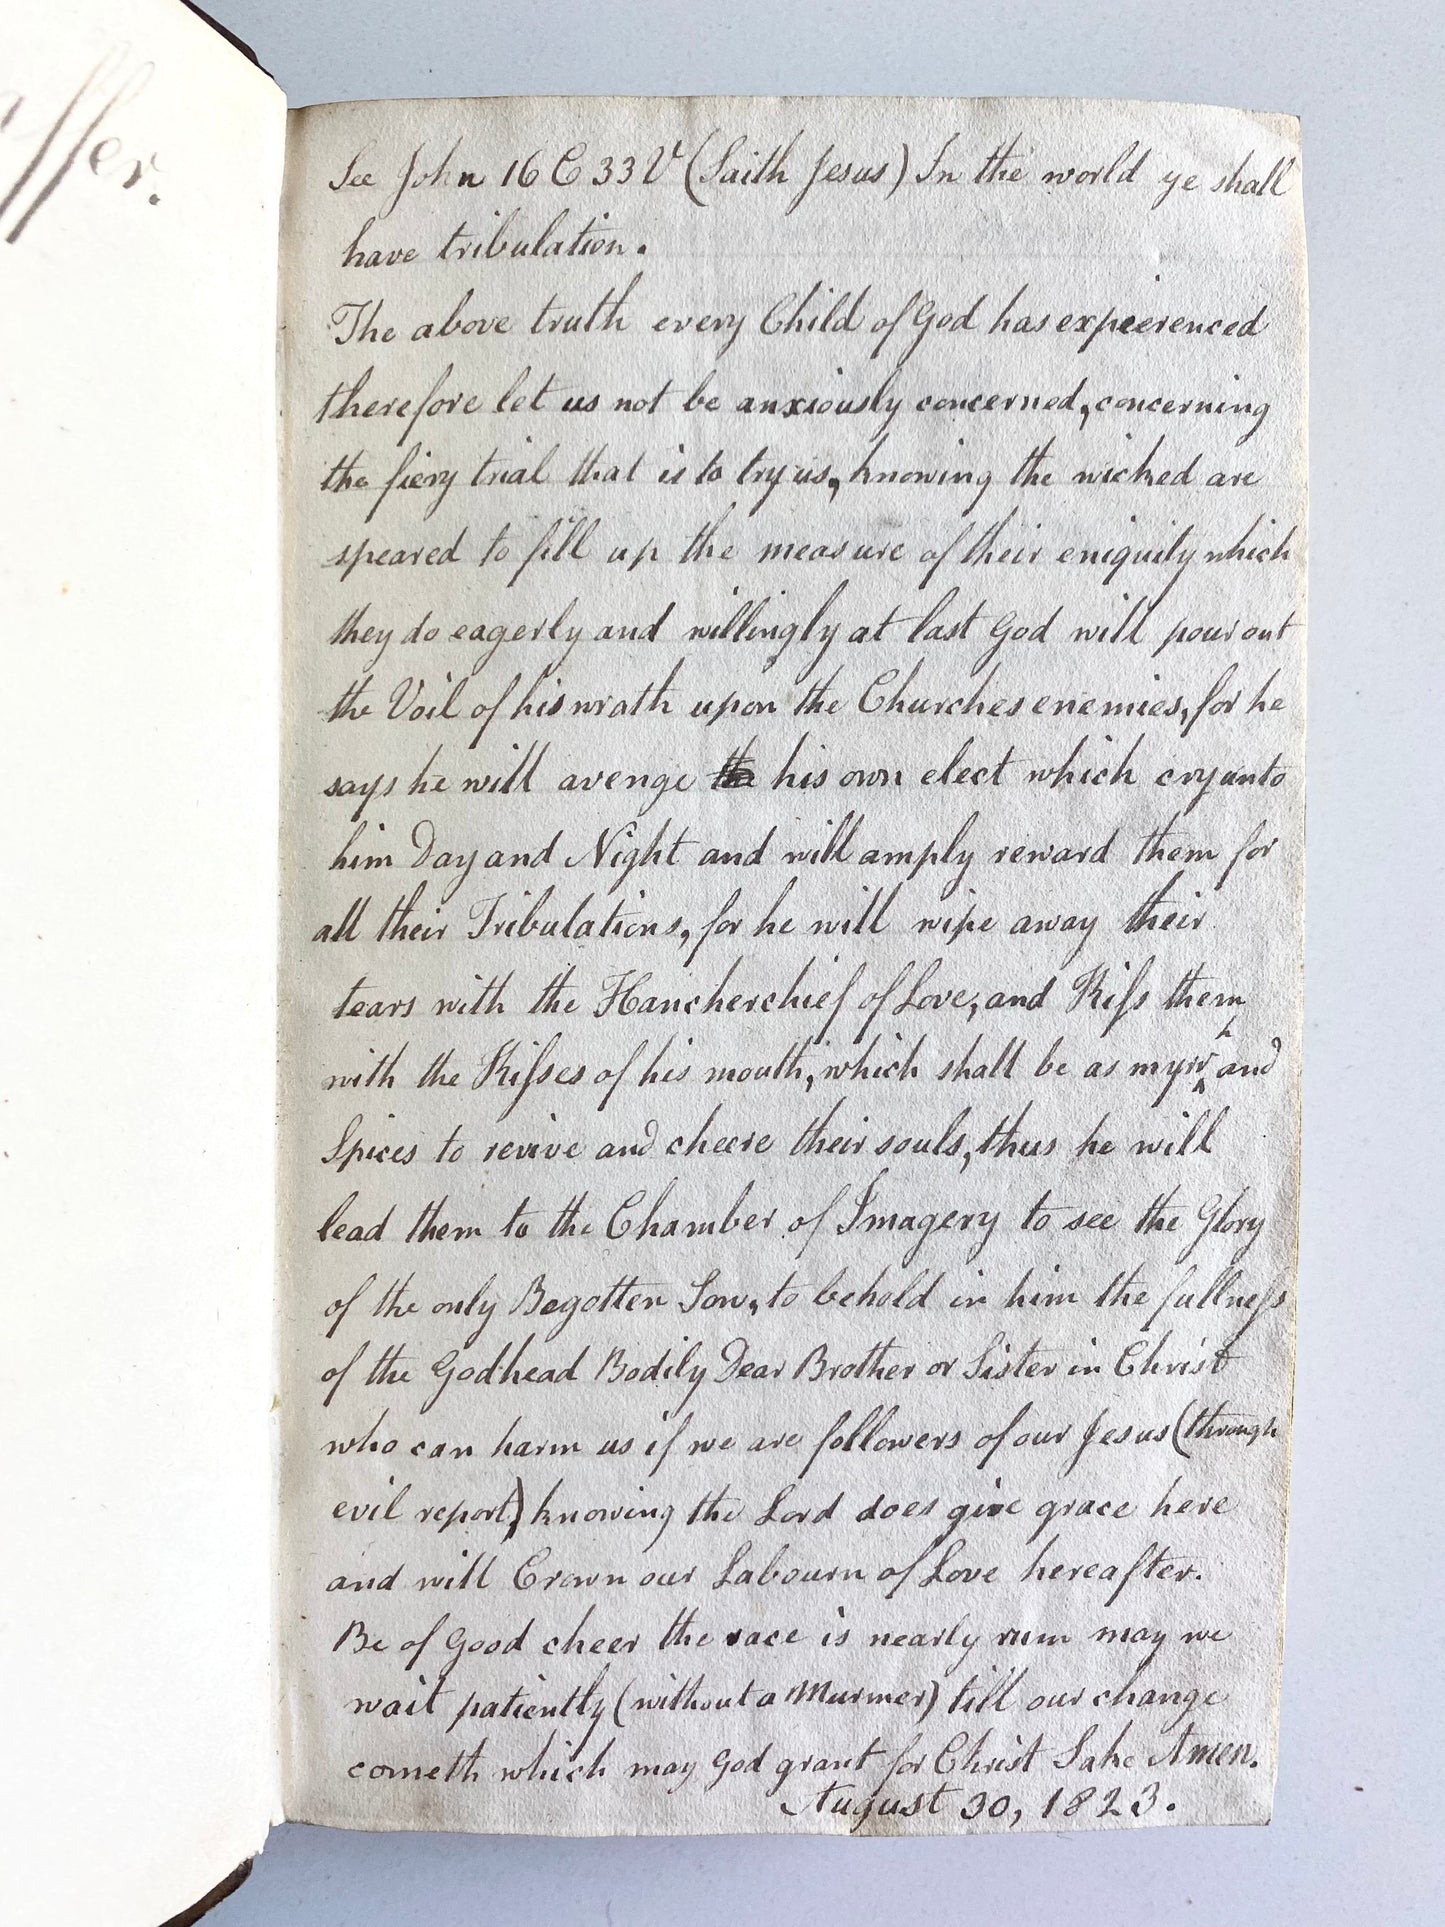 ffer.
See John 16 C 33 V (Saith Jesus) In the world ye shall
have tribulation.
The above truth every Child of God has expeerenced
therefore let us not be anxiously concerned, concerning
the fiery trial that is to try us, knowing the wicked are
speared to fill up the measure of their eniquity which
they do eagerly and willingly at last God will pour out
the Voil of his wrath upon the Churches enemies, for he
says he will avenge the his own elect which cry unto
him Day and Night and will amply reward them for
all their Tribulations, for he will wipe away their
tears with the Hancherchief of Love, and Kiſs them
with the Kiſses of his mouth, which shall be as myrrh and
Spices to revive and cheere their souls, thus he will
lead them to the Chamber of Imagery to see the Glory
of the only Begotten Son, to behold in him the fullneſs
of the Godhead Bodily Dear Brother or Sister in Christ
who can harm us if we are followers of our Jesus (through
evil report) knowing the Lord does give grace here
and will Crown our Labourn of Love hereafter.
Be of Good cheer the race is nearly run may we
wait patiently (without a Murmer) till our change
cometh which may God grant for Christ Sake Amen.
August 30, 1823.